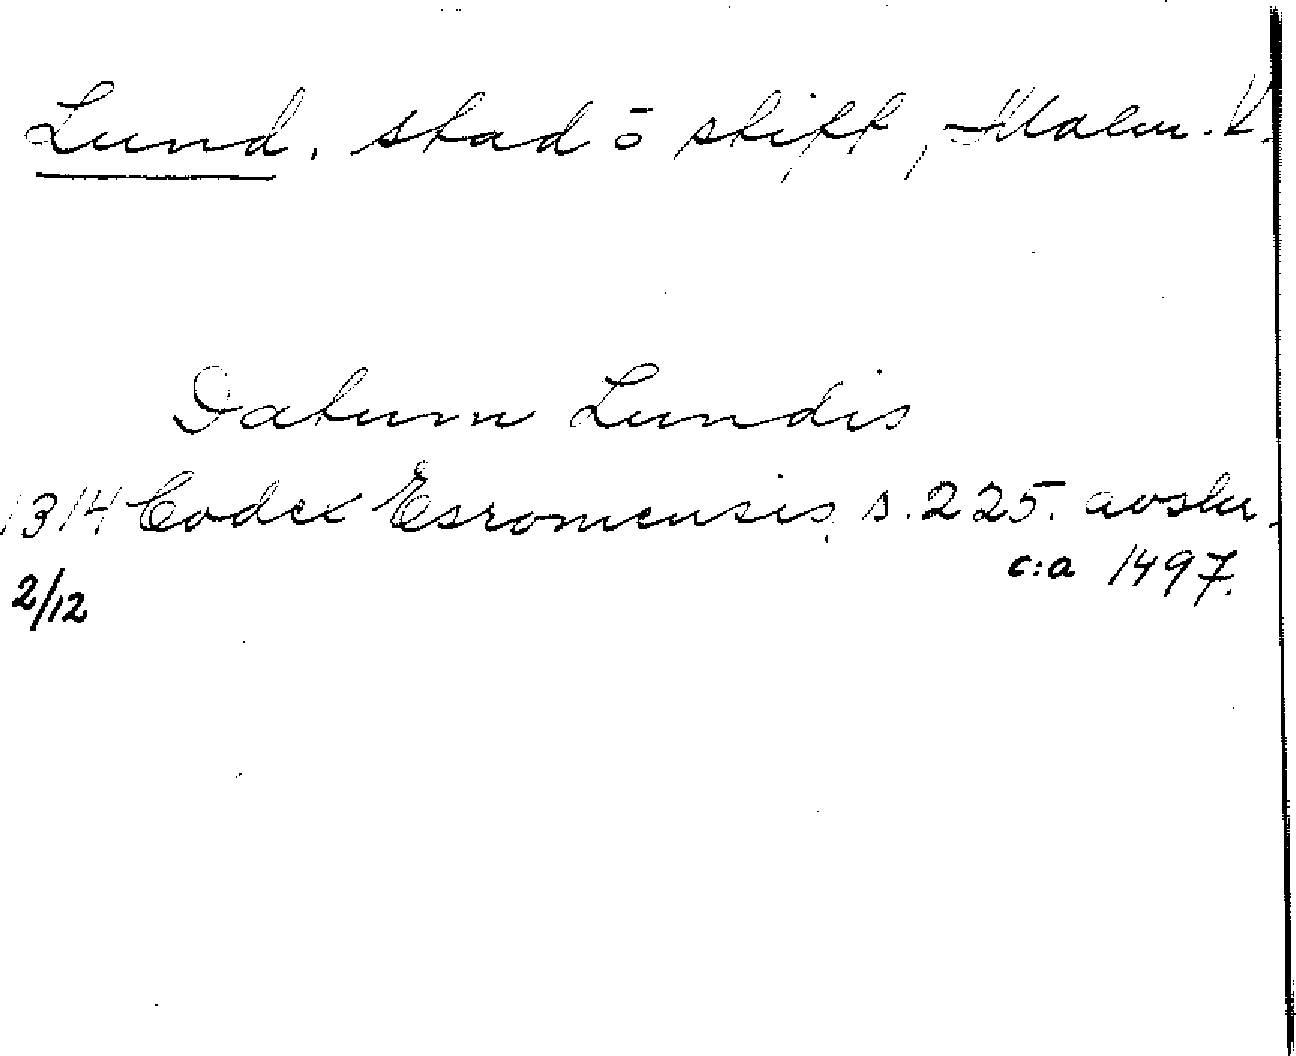 Lund, stad o stift, Malm. l.
Datum Lundis
1314 Codex Esromensis, s. 225. avskr.
2/12 c:a 1497.